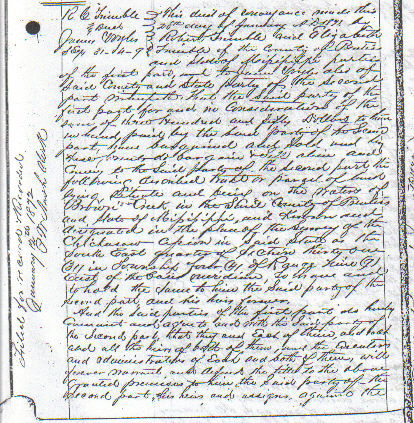 R C Trimble
& Deed
James Myles
SE¼ 31-4-9
This deed of conveyance made this
day of January A.D. 1871 by
Robert Trimble and Elizabeth
Trimble of the County of Prentiss
and State of Mississippi parties
of the first part, and James Myles also of
Said County and State party of the Second
part Witnesseth that the Said party of the
first part for and in Considerations of the
Sum of Hundred and fifty Dollars to him
in hand paid by the Said party of the Second
part have bargained and Sold and
these presents do bargain Sell alien and
Convey to the Said party of the Second part the
following described tract or parcel of land
lying Situate and being on the waters of
Browns Creek, in the Said County of Prentiss
and State of Mississippi, and Known and
designated in the plat of the Survey of the
Chickasaw Cession in Said State as the
South East quarter of Section thirty one
(31) in Township four (4) of Range Nine (9)
East of the Basis meridian to have and
to hold the Same to him the Said party of the
Second part, and his heirs forever.
And the Said parties of the first part do hereby
Covenant and agree to and with the Said party of
the Second part, that they and Each of them, and
and all the heirs of both of them, and the Executors
and administrators of Each and both of them, will
forever warrant and defend the title to the above
granted premises to him, the Said party of the
Second part, his heirs and assigns, against the
Filed for record &
January 1872